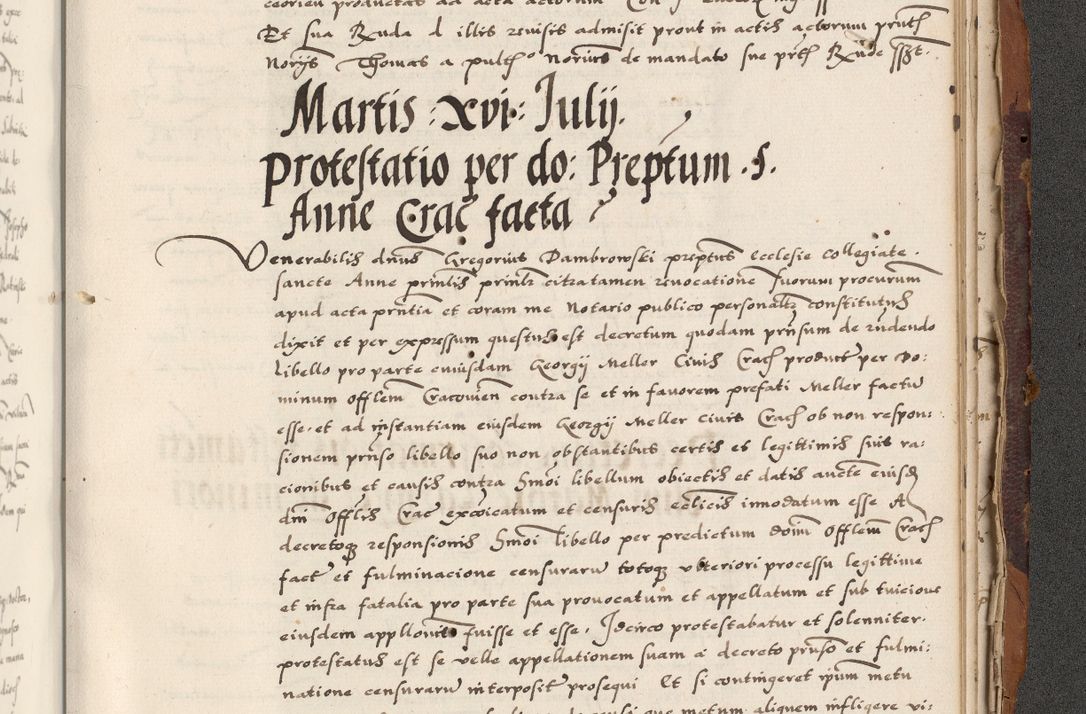 Et sua Rnda d illis revisis admisit prout in actis actorum pnth
Norijs Thomas a pulth Norius de mandato sue prth Rnde sszt.
Martis : xvi : Julij.
Protestatio per do: Preptum . S.
Anne Crac facta
Venerabilis dnus Gregorius Dambrowski preptus Ecclesie collegiate
sancte Anne citra tamen revocatione suorum procurum
apud acta pntia et coram me Notario publico personalr constitutus
dixit et per expressum questus est decretum quodam prnsum de rndendo
libello pro parte cuiusdam Georgij Meller Civis Crach product per do:
minum offlem Cracovien contra se et in favorem prefati Meller factu
esse et ad instantiam eiusdem Georgij Meller civis Crach ob non respon:
sionem prnso libello suo non obstantibus certis et legittimis suis ra:
cionibus et causis contra hmoi libellum obiectis et datis aucte eiusd
dni offlis Crac excoicatum et censuris eclicis innodatum esse A
decretoq responsionis hmoi libello per predictum domi offlem Crach
fact et fulminacione censuraru totoq ulteriori processu legittime
et infra fatalia pro parte sua provocatum et appellatum et sub tuicione
eiusdem appllonis fuisse et esse. Idcirco protestabatur et solenniter
protestatus est se velle appellationem suam a decreto prnso et fulmi:
natione censuraru interposit prosequi Et si contingeret ipsum metu
que metum aliquem infligere vi: